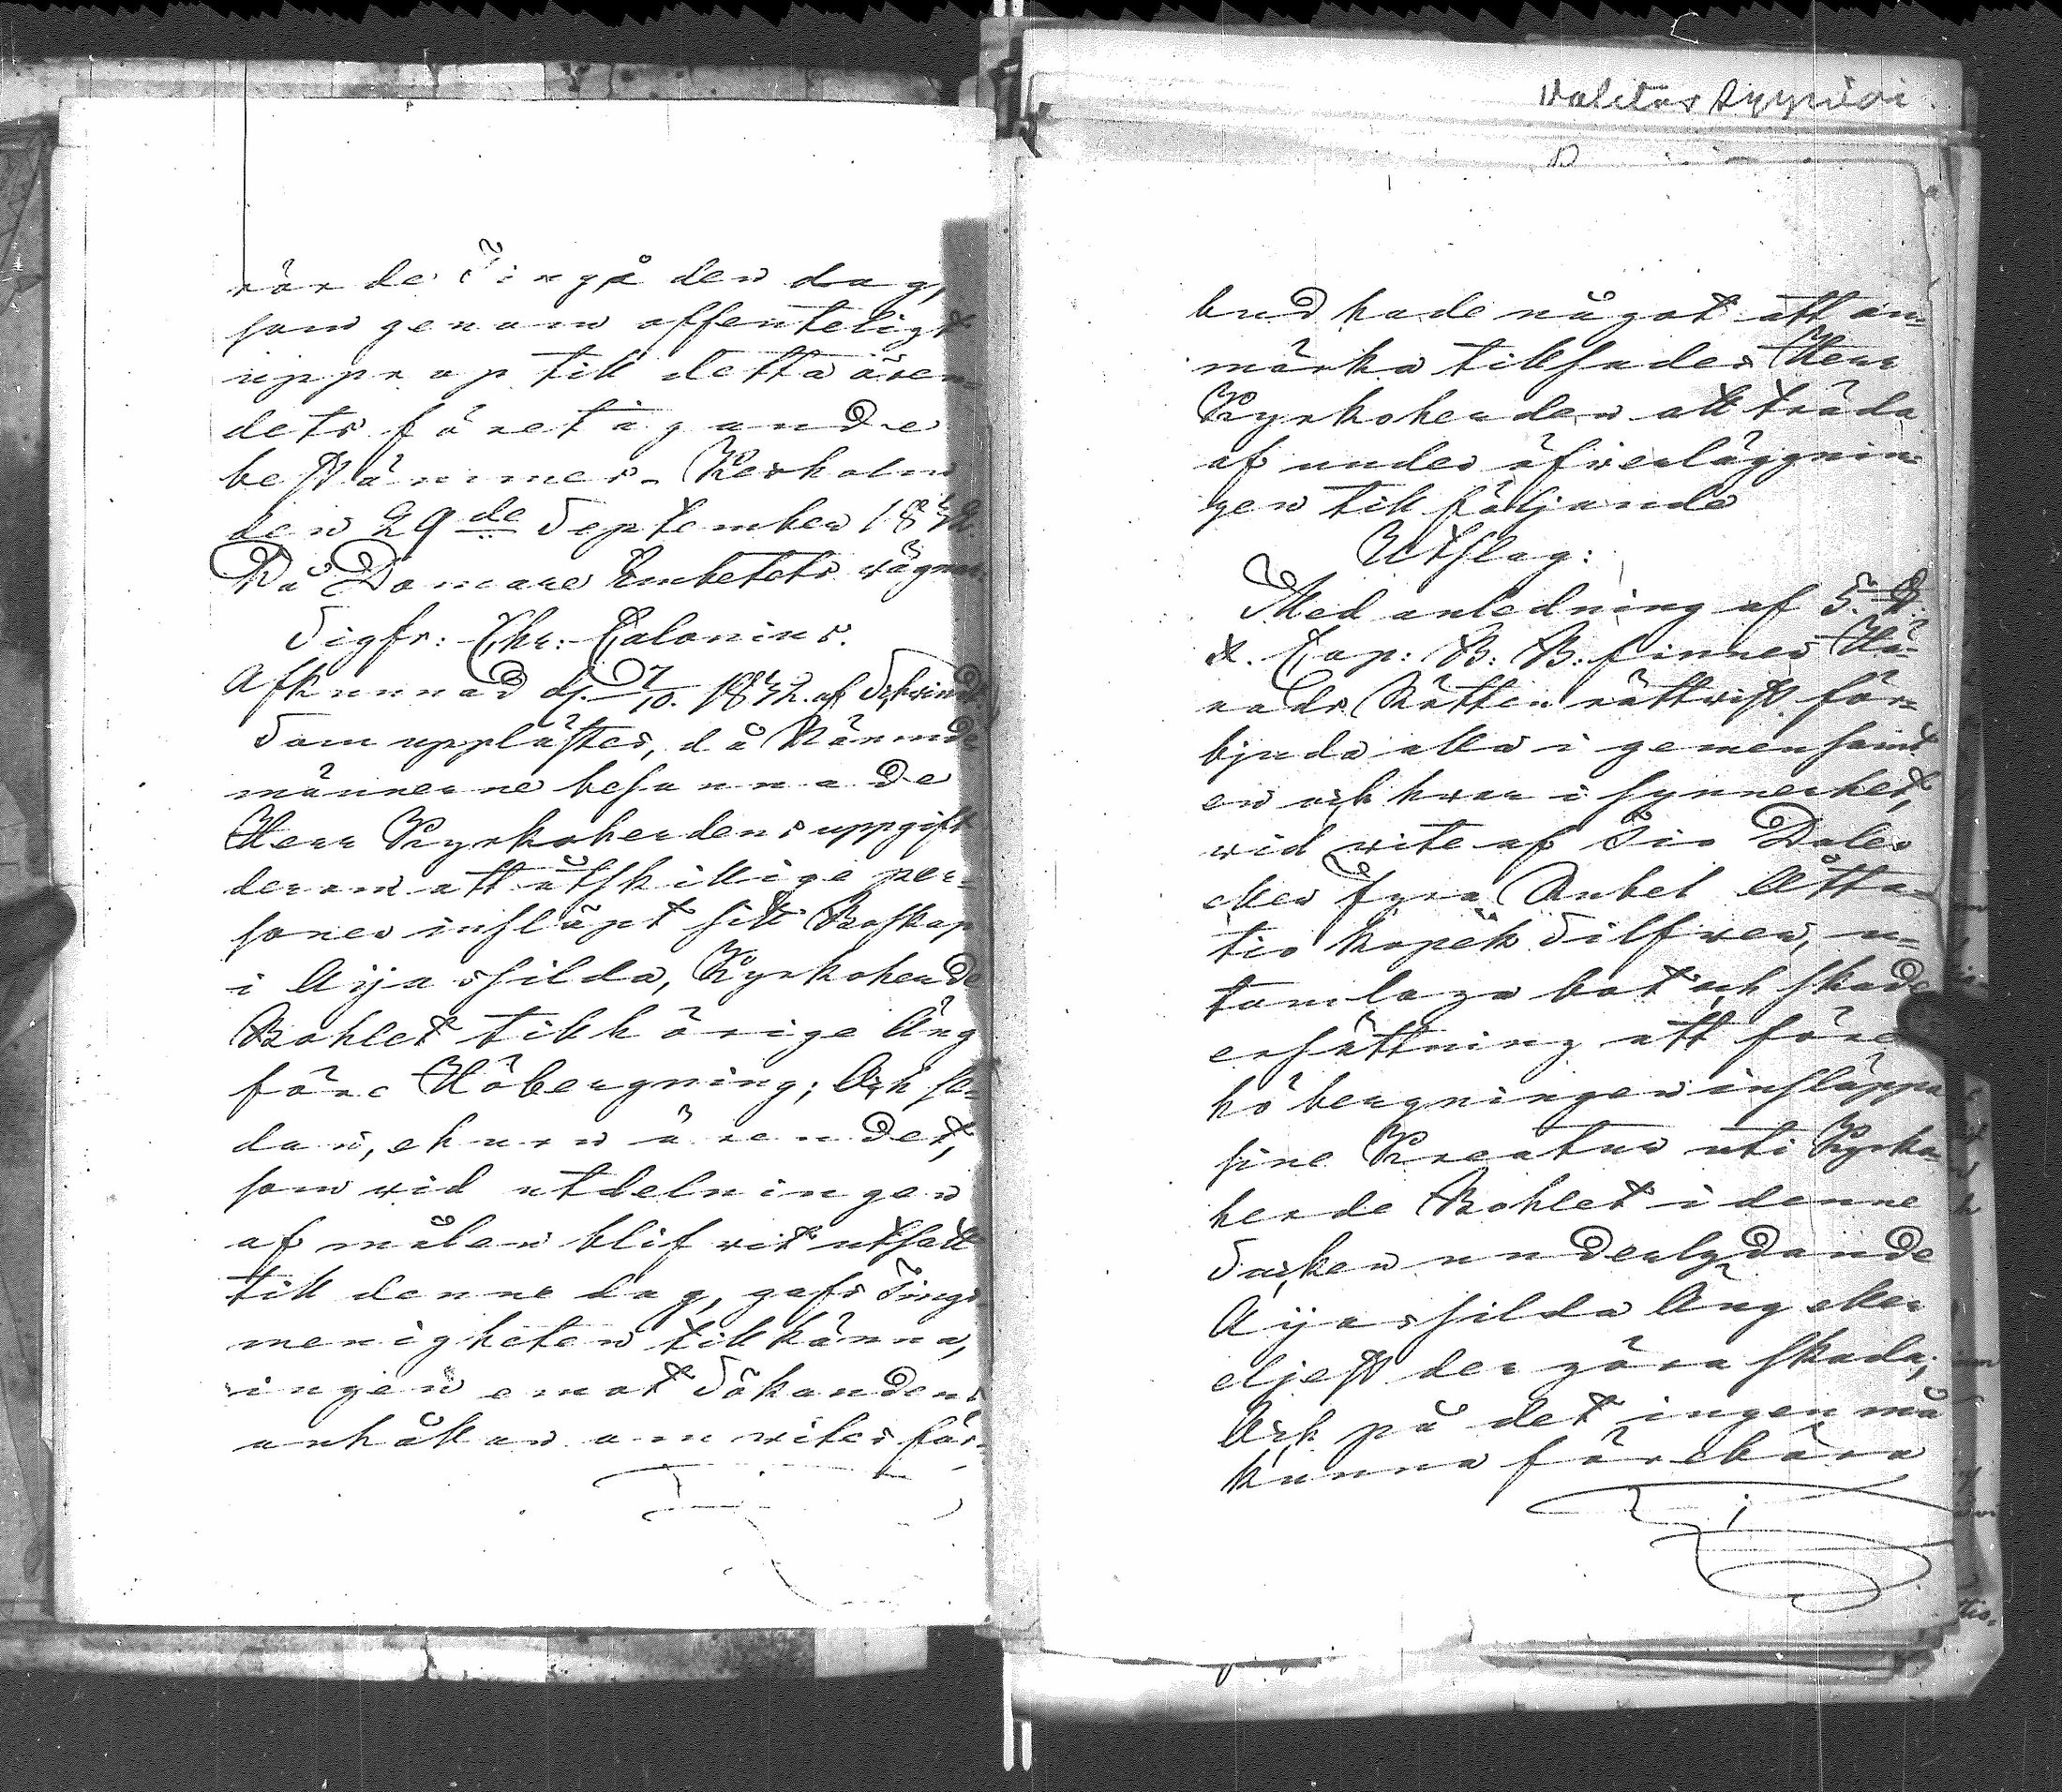 rörde Ting på den dag,
som genom offenteligt
upprop till detta ären-
dets företagande
bestämmes. Kexholm
den 29de September 1842.
På Domare Embetets vägnar
Sigfr: Chr: Calonius.
Afkunnad d. 7/10. 1842. af
Som upplästes, då Nämnde
männerne besannade
Herr Kyrkoherdens uppgift
derom att åtskillige per-
soner insläpt sitt Boskap
i Aijasilda, Kyrkoherde
Bohlet tillhörige Äng
före Höbergning; Och se-
dan, ehuru ärendet,
som wid utdelningen
af målen blifwit utsatt
till denne dag, gafs Tings
menigheten tillkänna,
ingen emot Sökandens
anhållan om wites för-
Valitus
bud hade något att an-
märka tillsades Herr
Kyrkoherden att träda
af under öfwerläggnin-
gen till följande
Utslag:
Med anledning af 5.
&. Cap: B: B: finner Hä-
rads Rätten rättwist för-
bjuda alla i gemen samt
en och hwar i synnerhet,
wid wite af Tio Daler
eller fyra Rubel Åtta-
tio Kopek Silfwer, u-
tom laga bot och skade
ersättning att före
höbergningen insläppa
sine Kreatur uti Kyrko-
herde Bohlet i denne
Socken underlydande
Aijasilda Äng eller
eljest der göra skada;
Och på det ingen må
kunna förebära